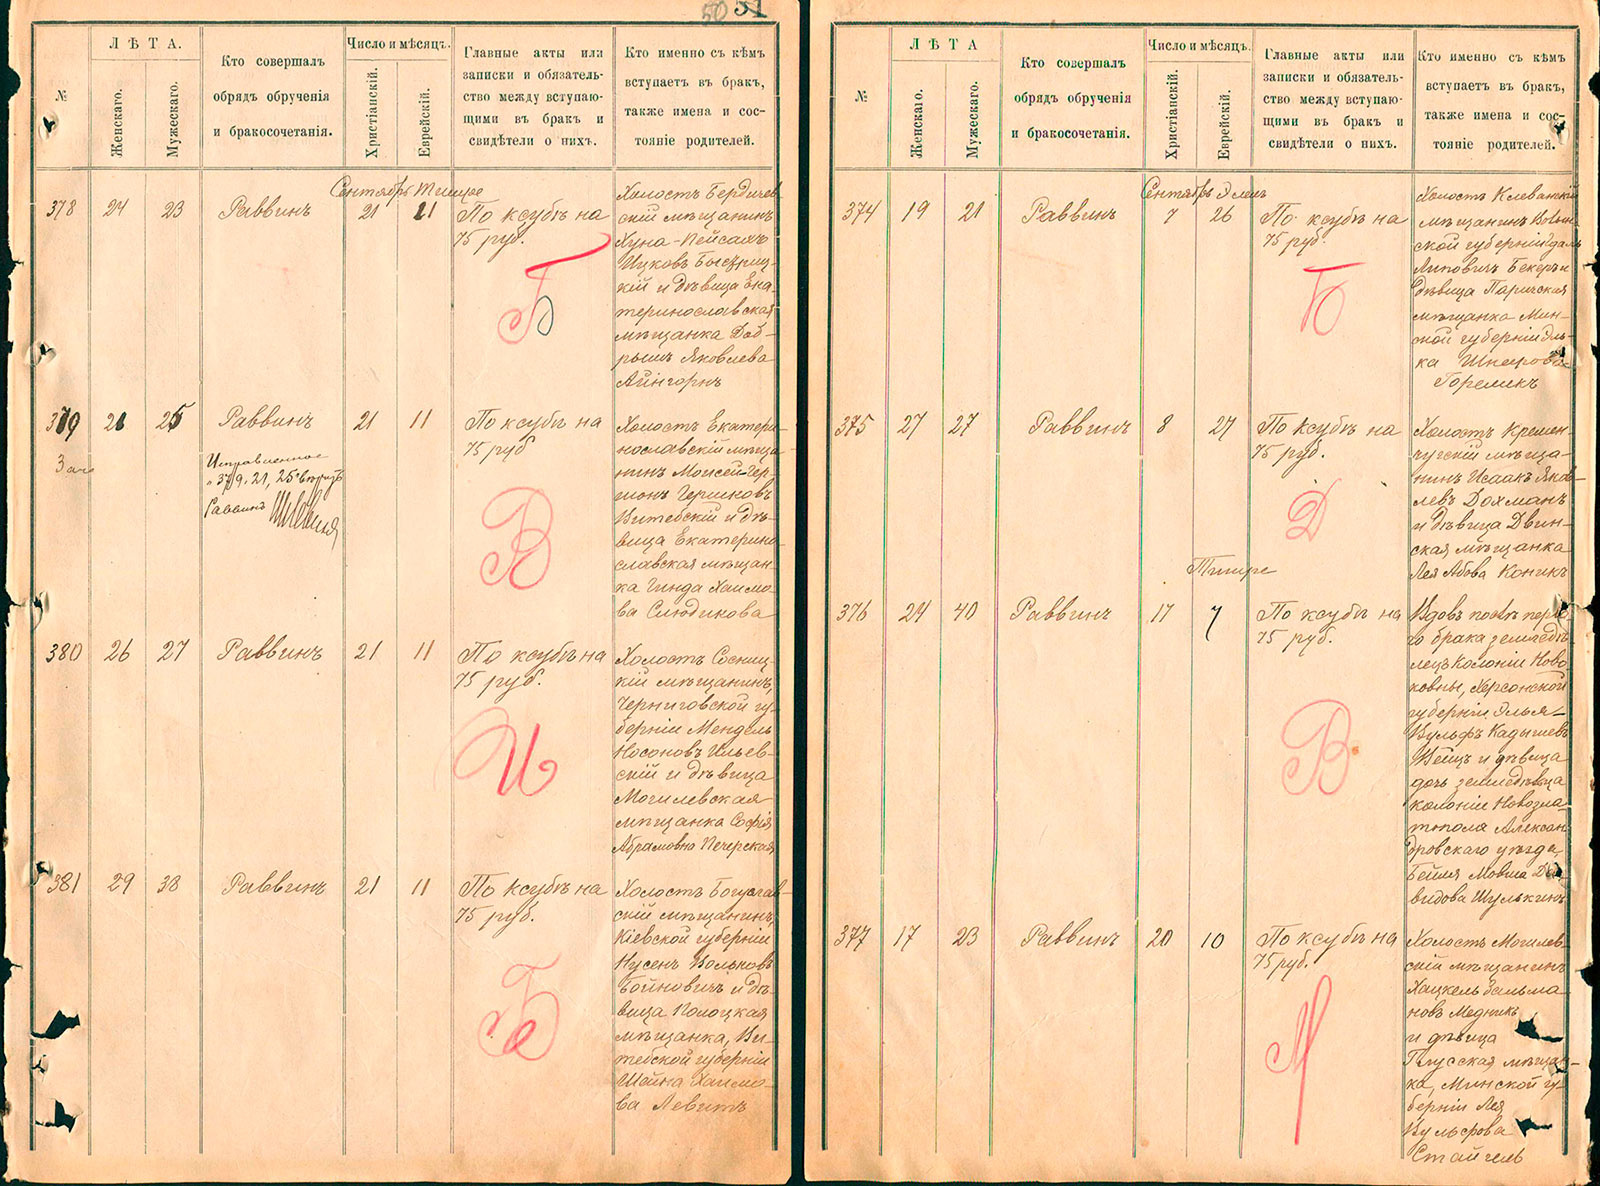 50 51
ЛѢТА.
Число и мѣсяцъ.
№
Женскаго.
Мужескаго.
Кто совершалъ
обрядъ обрученія
и бракосочетанія.
Христіанскій.
Еврейскій.
Главные акты или
записки и обязатель-
ство между вступаю-
щими въ бракъ и
свидѣтели о нихъ.
Кто именно съ кѣмъ
вступаетъ въ бракъ,
также имена и сос-
тояніе родителей.
Сентябрь Тишре
378 24 23 Раввинъ 21 11
По ксубѣ на
75 руб.
Б
Холостъ Бердичев
скій мѣщанинъ
Хуна-Пейсахъ
Ицковъ
кій и дѣвица Ека
теринославская
мѣщанка Доб-
рышъ Яковлева
Айнгорнъ
379 21 25 Раввинъ 21 11
По ксубѣ на
75 руб
Исправленное
379, 21, 25 вѣрно
Раввинъ
В
Холостъ Екатери-
нославскій мѣща-
нинъ Моисей-Гер-
шонъ Гершковъ
Витебскій и дѣ-
вица Екатерино
славская мѣщан-
ка Гинда Хаимо-
ва Слюдикова
380 26 27 Раввинъ 21 11
По ксубѣ на
75 руб.
И
Холостъ Сосниц-
кій мѣщанинъ,
Черниговской гу-
берніи Мендель
Носоновъ Ильев-
скій и дѣвица
Могилевская
мѣщанка Софія
Абрамовна Печерская
381 29 38 Раввинъ 21 11
По ксубѣ на
75 руб.
Б
Холостъ Богуслав-
скій мѣщанинъ,
Кіевской губерніи
Нусенъ Вольковъ
Бойновичъ и дѣ-
вица Полоцкая
мѣщанка, Ви-
тебской губерніи
Шейна Хаимо-
ва Левитъ
ЛѢТА
Число и мѣсяцъ.
№
Женскаго.
Мужескаго.
Кто совершалъ
обрядъ обрученія
и бракосочетанія.
Христіанскій.
Еврейскій.
Главные акты или
записки и обязатель-
ство между вступаю-
щими въ бракъ и
свидѣтели о нихъ.
Кто именно съ кѣмъ
вступаетъ въ бракъ,
также имена и сос-
тояніе родителей.
Сентябрь Элелъ
374 19 21 Раввинъ 7 26
По ксубѣ на
75 руб.
Б
Холостъ Клеванскій
мѣщанинъ Волын
ской губерніи
Липовичъ Бекеръ и
дѣвица Паричская
мѣщанка Мин-
ской губерніи Эль-
ка
Гореликъ
375 27 27 Раввинъ 8 27
По ксубѣ на
75 руб.
Д
Холостъ Кремен-
чугскій мѣща-
нинъ Исаакъ Яков-
левъ Дохманъ
и дѣвица Двин-
ская мѣщанка
Лея Абова Коникъ
Тишре
376 24 40 Раввинъ 17 7
По ксубѣ на
75 руб.
В
Вдовъ послѣ перва
го брака земледѣ
лецъ колоніи Ново
ковны, Херсонской
губерніи Элья-
Вульфъ Кадышевъ
Вейцъ и дѣвица
дочь земледѣльца
колоніи Новозла-
тополя Алексан
дровскаго уѣзда,
Бейля Мовша Да-
видова Шулькинъ
377 17 23 Раввинъ 20 10
По ксубѣ на
75 руб.
М
Холостъ Могилев-
скій мѣщанинъ
Хацкель Зальма-
новъ Медникъ
и дѣвица
Глусская мѣщан-
ка, Минской гу-
берніи Лея
Вульфова
Стайгель